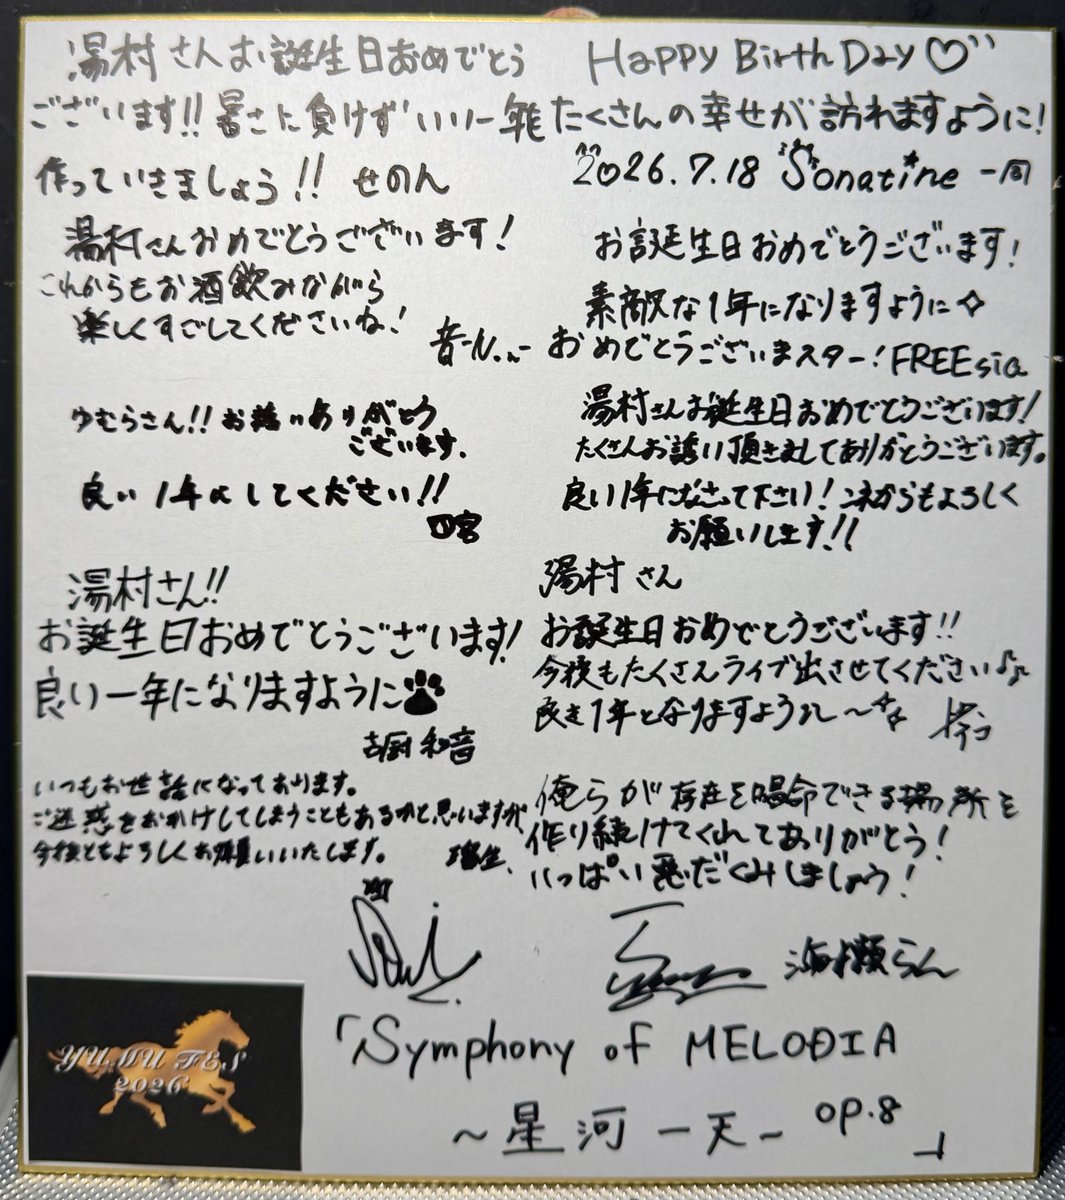 湯村さんお誕生日おめでとう
ございます!!暑さに負けずいい一年
作っていきましょう!! せのん
Happy Birth Day♡
たくさんの幸せが訪れますように!
2026.7.18 Sonatine 一同
湯村さんおめでとうございます!
これからもお酒飲みながら
楽しくすごしてくださいね!
お誕生日おめでとうございます!
素敵な1年になりますように✧
おめでとうございまスター! FREEsia
ゆむらさん!!お誘いありがとう
ございます.
良い1年にしてください!!
四宮
湯村さんお誕生日おめでとうございます!
たくさんお誘い頂きましてありがとうございます。
良い1年になさって下さい!これからもよろしく
お願いします!!
湯村さん!!
お誕生日おめでとうございます!
良い一年になりますように🐾
古厨和音
湯村さん
お誕生日おめでとうございます!!
今後もたくさんライブ出させてください♪
良き1年となりますように〜
いつもお世話になっております。
ご迷惑をおかけしてしまうこともあるかと思いますが
今後ともよろしくお願いいたします。
瑠生.
俺らが存在を唱命できる場所を
作り続けてくれてありがとう!
いっぱい悪だくみしましょう!
海瀬らん
「Symphony of MELODIA
~星河一天~ op.8」
YUMU FES
2026